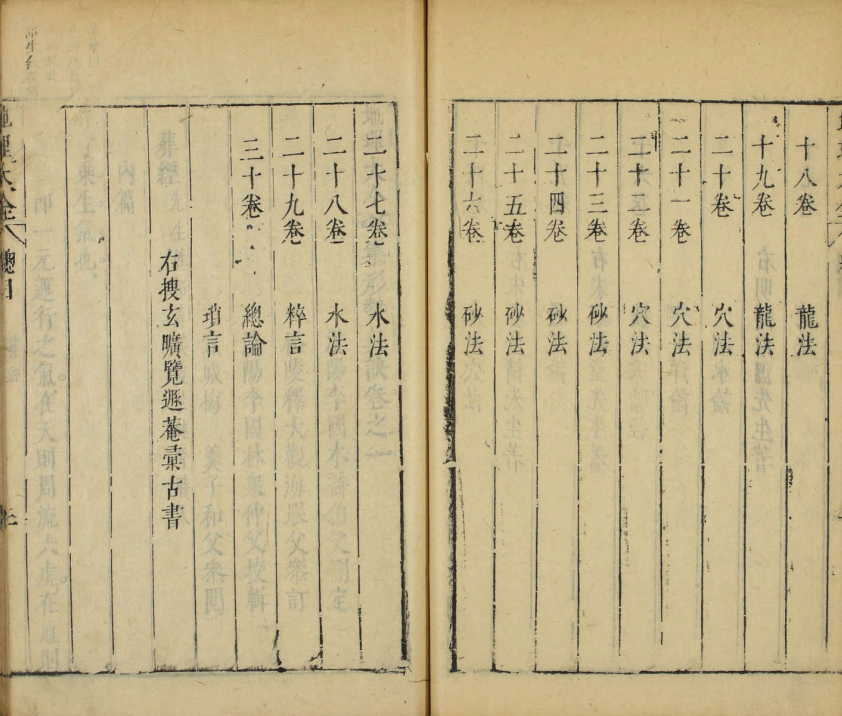 十八卷 龍法
十九卷 龍法
二十卷 穴法
二十一卷 穴法
二十二卷 穴法
二十三卷 砂法
二十四卷 砂法
二十五卷 砂法
二十六卷 砂法
二十七卷 水法
二十八卷 水法
二十九卷 粹言
三十卷 總論
瑣言
右搜玄曠覽遯菴彙古書
地理大全 總目